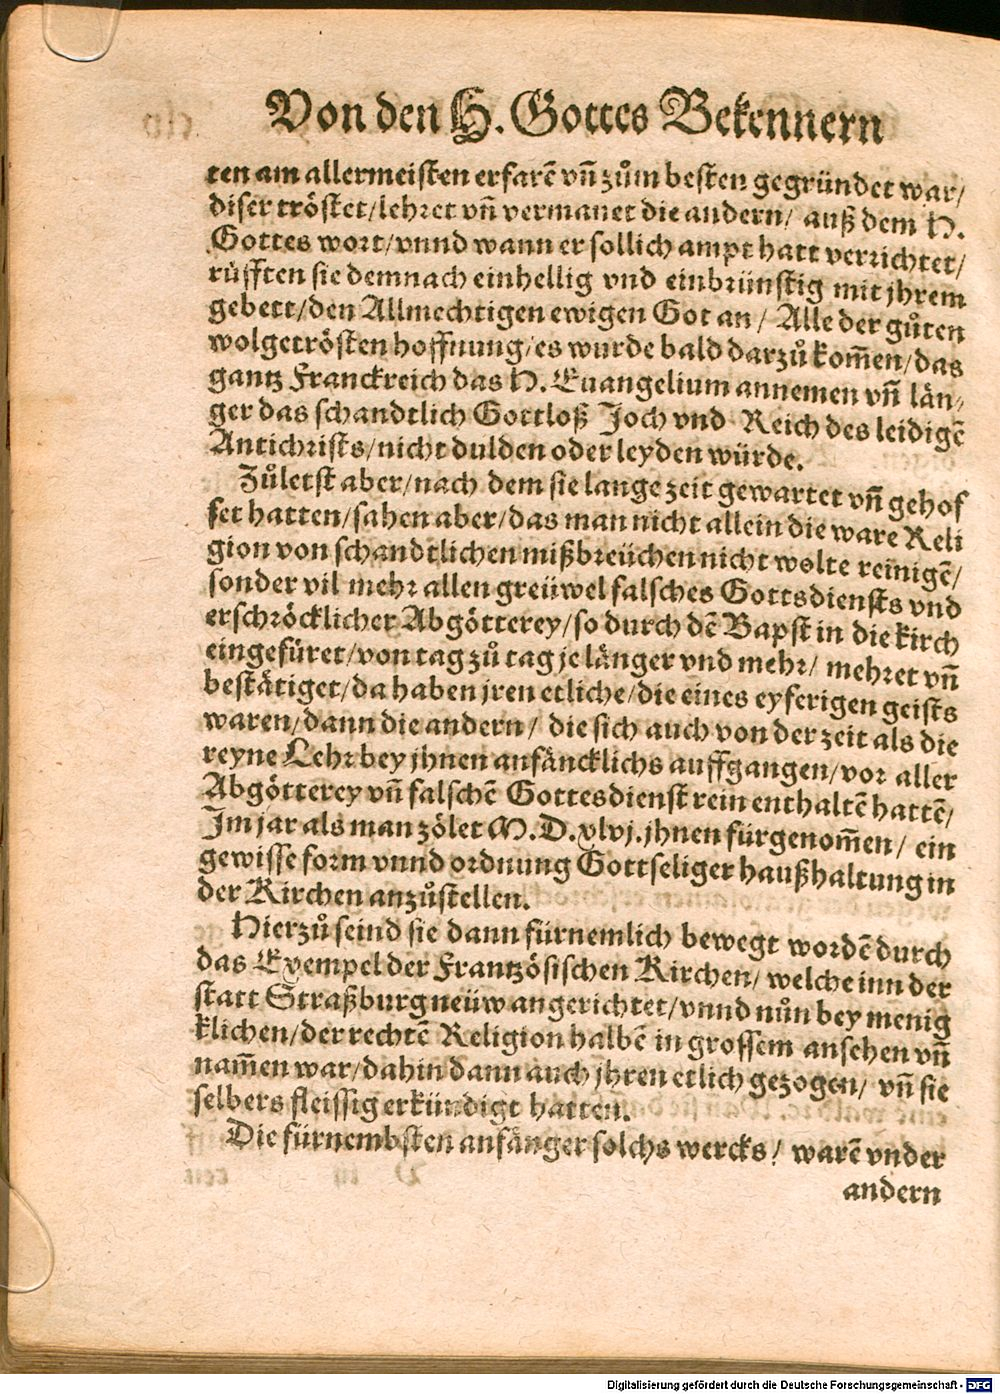 Von den H. Gottes Bekennern
ten am allermeisten erfarē vñ zům besten gegründet war/
diser tröstet/lehret vñ vermanet die andern/ auß dem H.
Gottes wort/vnnd wann er sollich ampt hatt verrichtet/
rüfften sie demnach einhellig vnd einbrünstig mit jhrem
gebett/den Allmechtigen ewigen Got an/ Alle der gůten
wolgetrösten hoffnung/es wurde bald darzů kom̄en/das
gantz Franckreich das H. Euangelium annemen vñ län/
ger das schandtlich Gottloß Joch vnd Reich des leidigē
Antichrists/nicht dulden oder leyden würde.
Zůletst aber/nach dem sie lange zeit gewartet vñ gehof
fet hatten/sahen aber/das man nicht allein die ware Reli
gion von schandtlichen mißbreüchen nicht wolte reinigē/
sonder vil mehr allen greüwel falsches Gottsdiensts vnd
erschröcklicher Abgötterey/so durch dē Bapst in die kirch
eingefüret/von tag zů tag je länger vnd mehr/ mehret vñ
bestätiget/da haben jren etliche/die eines eyferigen geists
waren/dann die andern/ die sich auch von der zeit als die
reyne Lehr bey jhnen anfäncklichs auffgangen/vor aller
Abgötterey vñ falschē Gottesdienst rein enthaltē hattē/
Im jar als man zölet M.D.xlvj.jhnen fürgenom̄en/ ein
gewisse form vnnd ordnung Gottseliger haußhaltung in
der Kirchen anzůstellen.
Hierzů seind sie dann fürnemlich bewegt wordē durch
das Exempel der Frantzösischen Kirchen/ welche inn der
statt Straßburg neüw angerichtet/vnnd nůn bey menig
klichen/der rechtē Religion halbē in grossem ansehen vñ
nam̄en war/dahin dann auch jhren etlich gezogen/ vñ sie
selbers fleissig erkündigt hatten.
Die fürnembsten anfänger solchs wercks/ warē vnder
andern
Digitalisierung gefördert durch die Deutsche Forschungsgemeinschaft - DFG